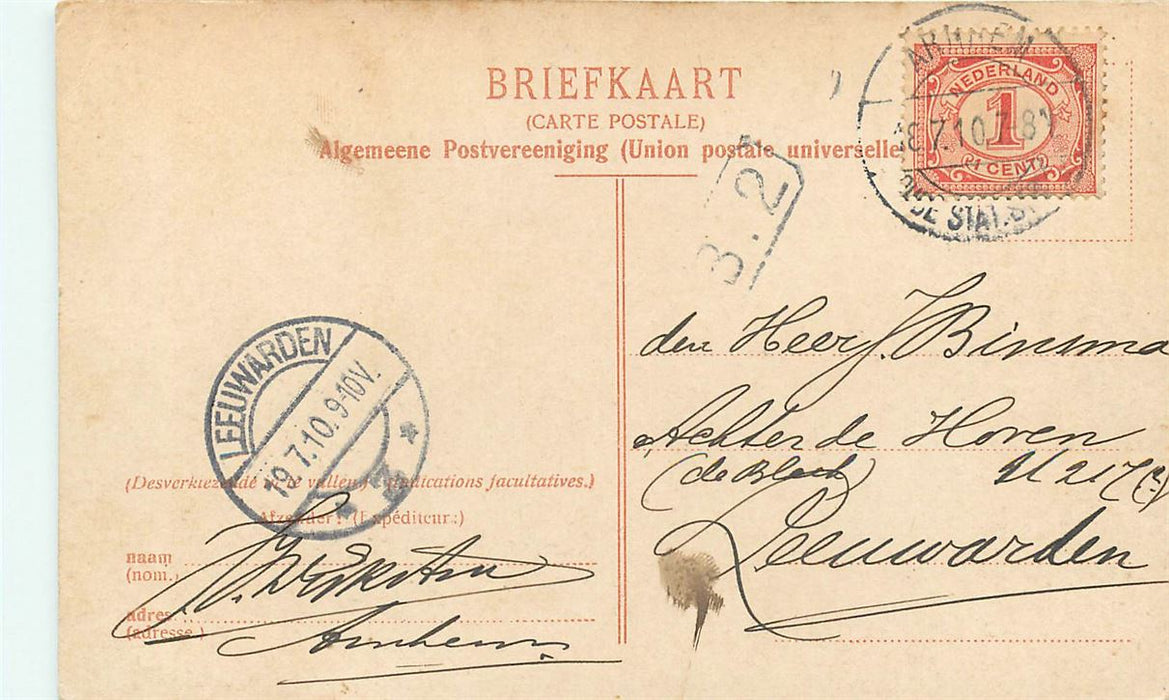 BRIEFKAART
(CARTE POSTALE)
Algemeene Postvereeniging (Union postale universelle
ARNHEM
18.7.10.7-8V
OUDE STAT.STR
NEDERLAND
1
(1 CENT)
3.2
den Heer J. Binsma
Achter de Hoven
(de Bleek)
Leeuwarden
LEEUWARDEN
19.7.10.9-10V.
(Desverkiezende in te vullen; indications facultatives.)
Afzender: (Expéditeur:)
naam
(nom.)
adres
(adresse.)
Arnhem